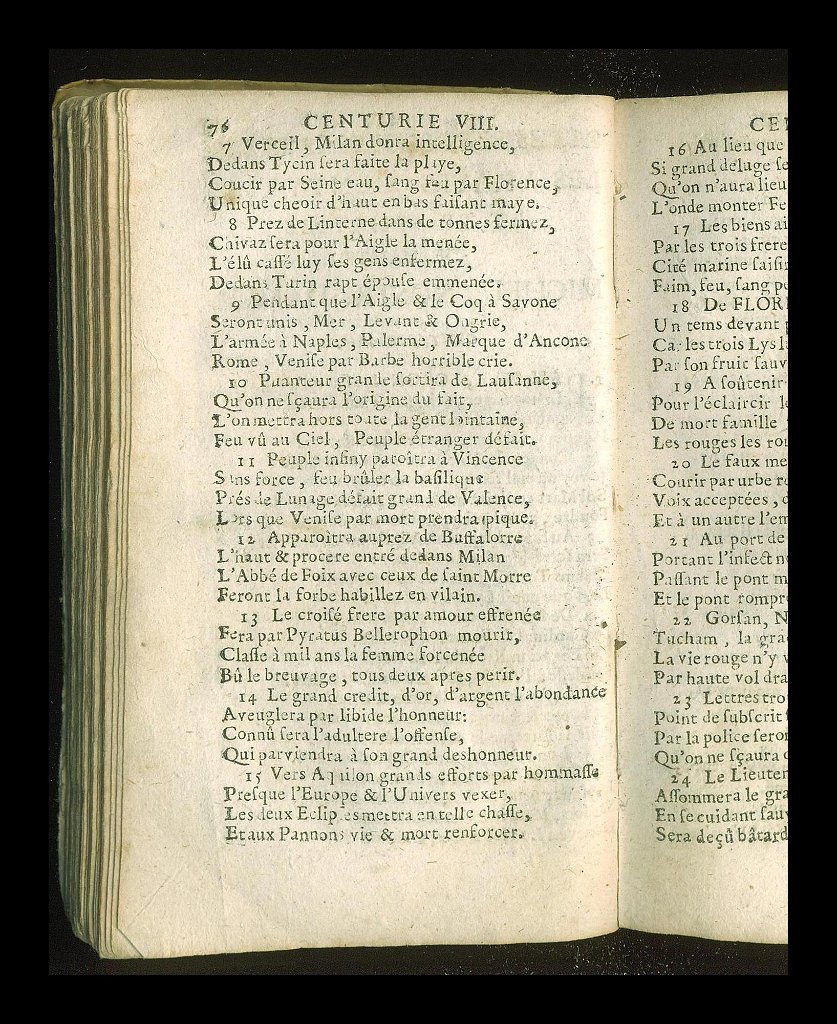 76 CENTURIE VIII.
7 Verceil, Milan donra intelligence,
Dedans Tycin sera faite la playe,
Coucir par Seine eau, sang feu par Florence,
Unique cheoir d'haut en bas faisant maye.
8 Prez de Linterne dans de tonnes fermez,
Chivaz sera pour l'Aigle la menée,
L'élû cassé luy ses gens enfermez,
Dedans Turin rapt épouse emmenée.
9 Pendant que l'Aigle & le Coq à Savone
Seront unis, Mer, Levant & Ongrie,
L'armée à Naples, Palerme, Marque d'Ancone
Rome, Venise par Barbe horrible crie.
10 Puanteur grande sortira de Lausanne,
Qu'on ne sçaura l'origine du fait,
L'on mettra hors toute la gent lointaine,
Feu vû au Ciel, Peuple étranger défait.
11 Peuple infiny paroîtra à Vincence
Sans force, feu brûler la basilique
Prés de Lunage défait grand de Valence,
Lors que Venise par mort prendra pique.
12 Apparoîtra auprez de Buffalorre
L'haut & procere entré dedans Milan
L'Abbé de Foix avec ceux de saint Morre
Feront la forbe habillez en vilain.
13 Le croisé frere par amour effrenée
Fera par Pyratus Bellerophon mourir,
Classe à mil ans la femme forcenée
Bû le breuvage, tous deux apres perir.
14 Le grand credit, d'or, d'argent l'abondance
Aveuglera par libide l'honneur:
Connû sera l'adultere l'offense,
Qui parviendra à son grand deshonneur.
15 Vers Aquilon grands efforts par hommasse
Presque l'Europe & l'Univers vexer,
Les deux Eclipses mettra en telle chasse,
Et aux Pannons vie & mort renforcer.
CE
16 Au lieu que
Si grand deluge se
Qu'on n'aura lieu
L'onde monter Fe
17 Les biens ai
Par les trois frere
Cité marine saisir
Faim, feu, sang pe
18 De FLOR
Un tems devant
Car les trois Lys l
Par son fruit sauv
19 A soûtenir
Pour l'éclaircir le
De mort famille
Les rouges les rou
20 Le faux me
Courir par urbe r
Voix acceptées, c
Et à un autre l'em
21 Au port de
Portant l'infect n
Passant le pont m
Et le pont rompr
22 Gorsan, N
Tucham, la gra
La vie rouge n'y v
Par haute vol dra
23 Lettres tro
Point de subscrit
Par la police sero
Qu'on ne sçaura
24 Le Lieuten
Assommera le gra
En se cuidant sau
Sera deçû bâtard